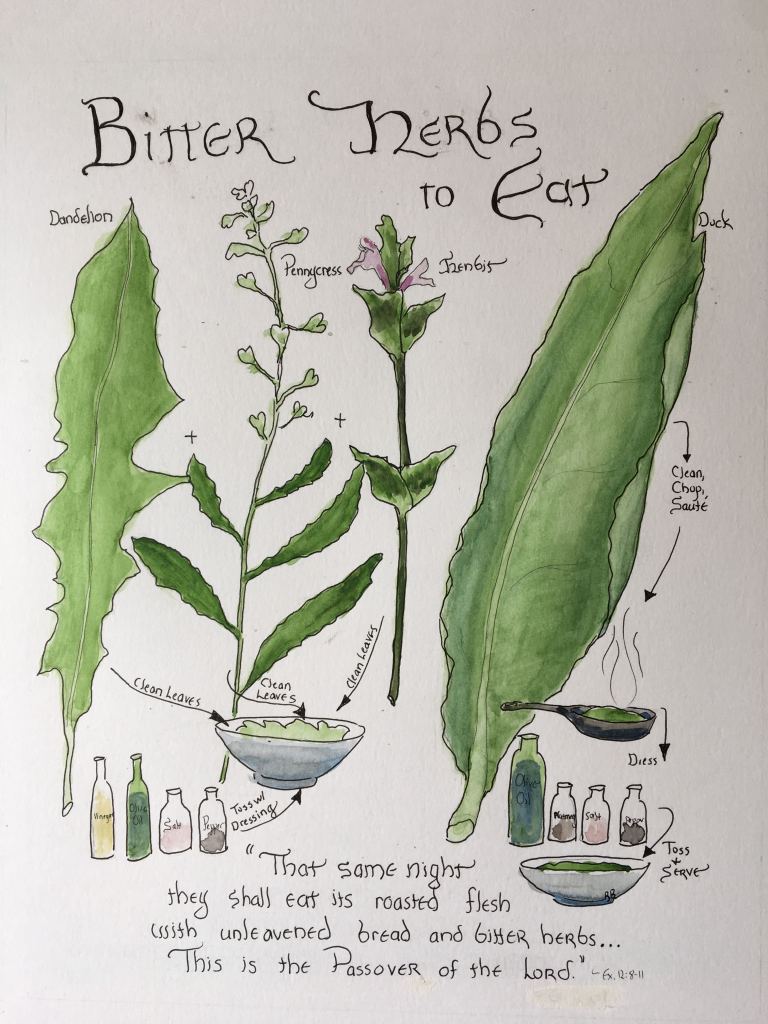 Bitter Herbs
to Eat
Dandelion
Pennycress
Henbit
Dock
+
+
Clean,
Chop,
Sauté
Clean Leaves
Clean
Leaves
Clean Leaves
Dress
Vinegar
Olive
Oil
Salt
Pepper
Toss w/
Dressing
Olive
Oil
Nutmeg
Salt
Pepper
Toss
+
Serve
BB
"That same night
they shall eat its roasted flesh
with unleavened bread and bitter herbs...
This is the Passover of the Lord."
- Ex. 12:8-11